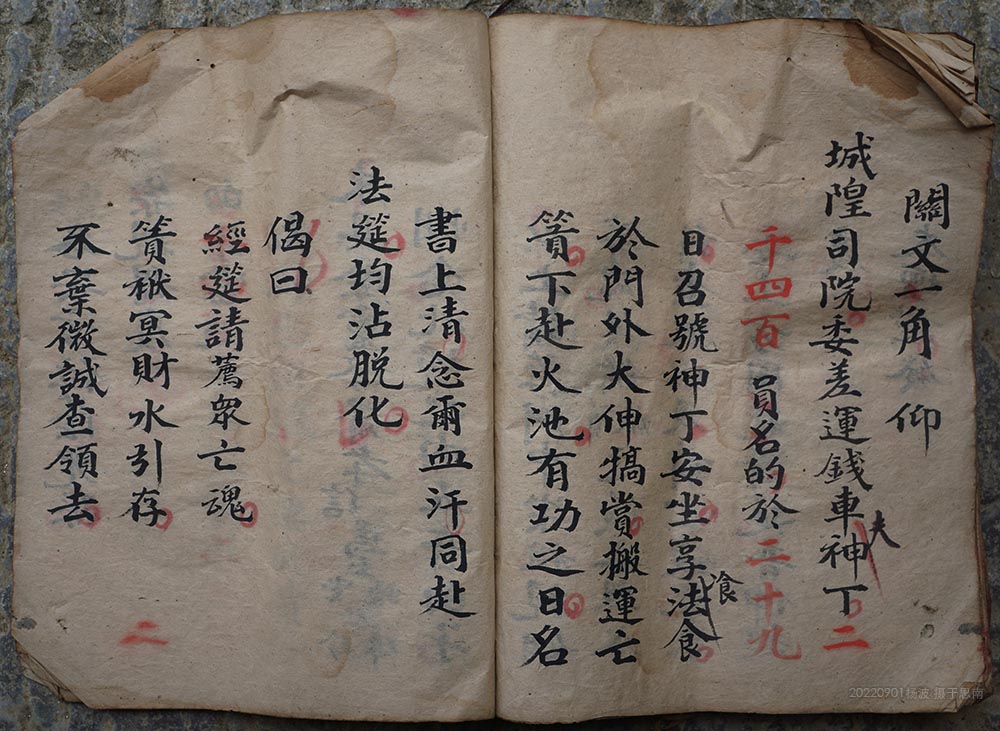 關文一角仰
城隍司院委差運錢車夫神丁二
千四百員名的於二十九
日召號神丁安坐享法食
食
於門外大伸犒賞搬運亡
簀下赴火池有功之日名
書上清念爾血汗同赴
法筵均沾脱化
偈曰
經筵請薦眾亡魂
簀袱冥財水引存
不棄微誠查領去
二
20220901杨波 摄于思南